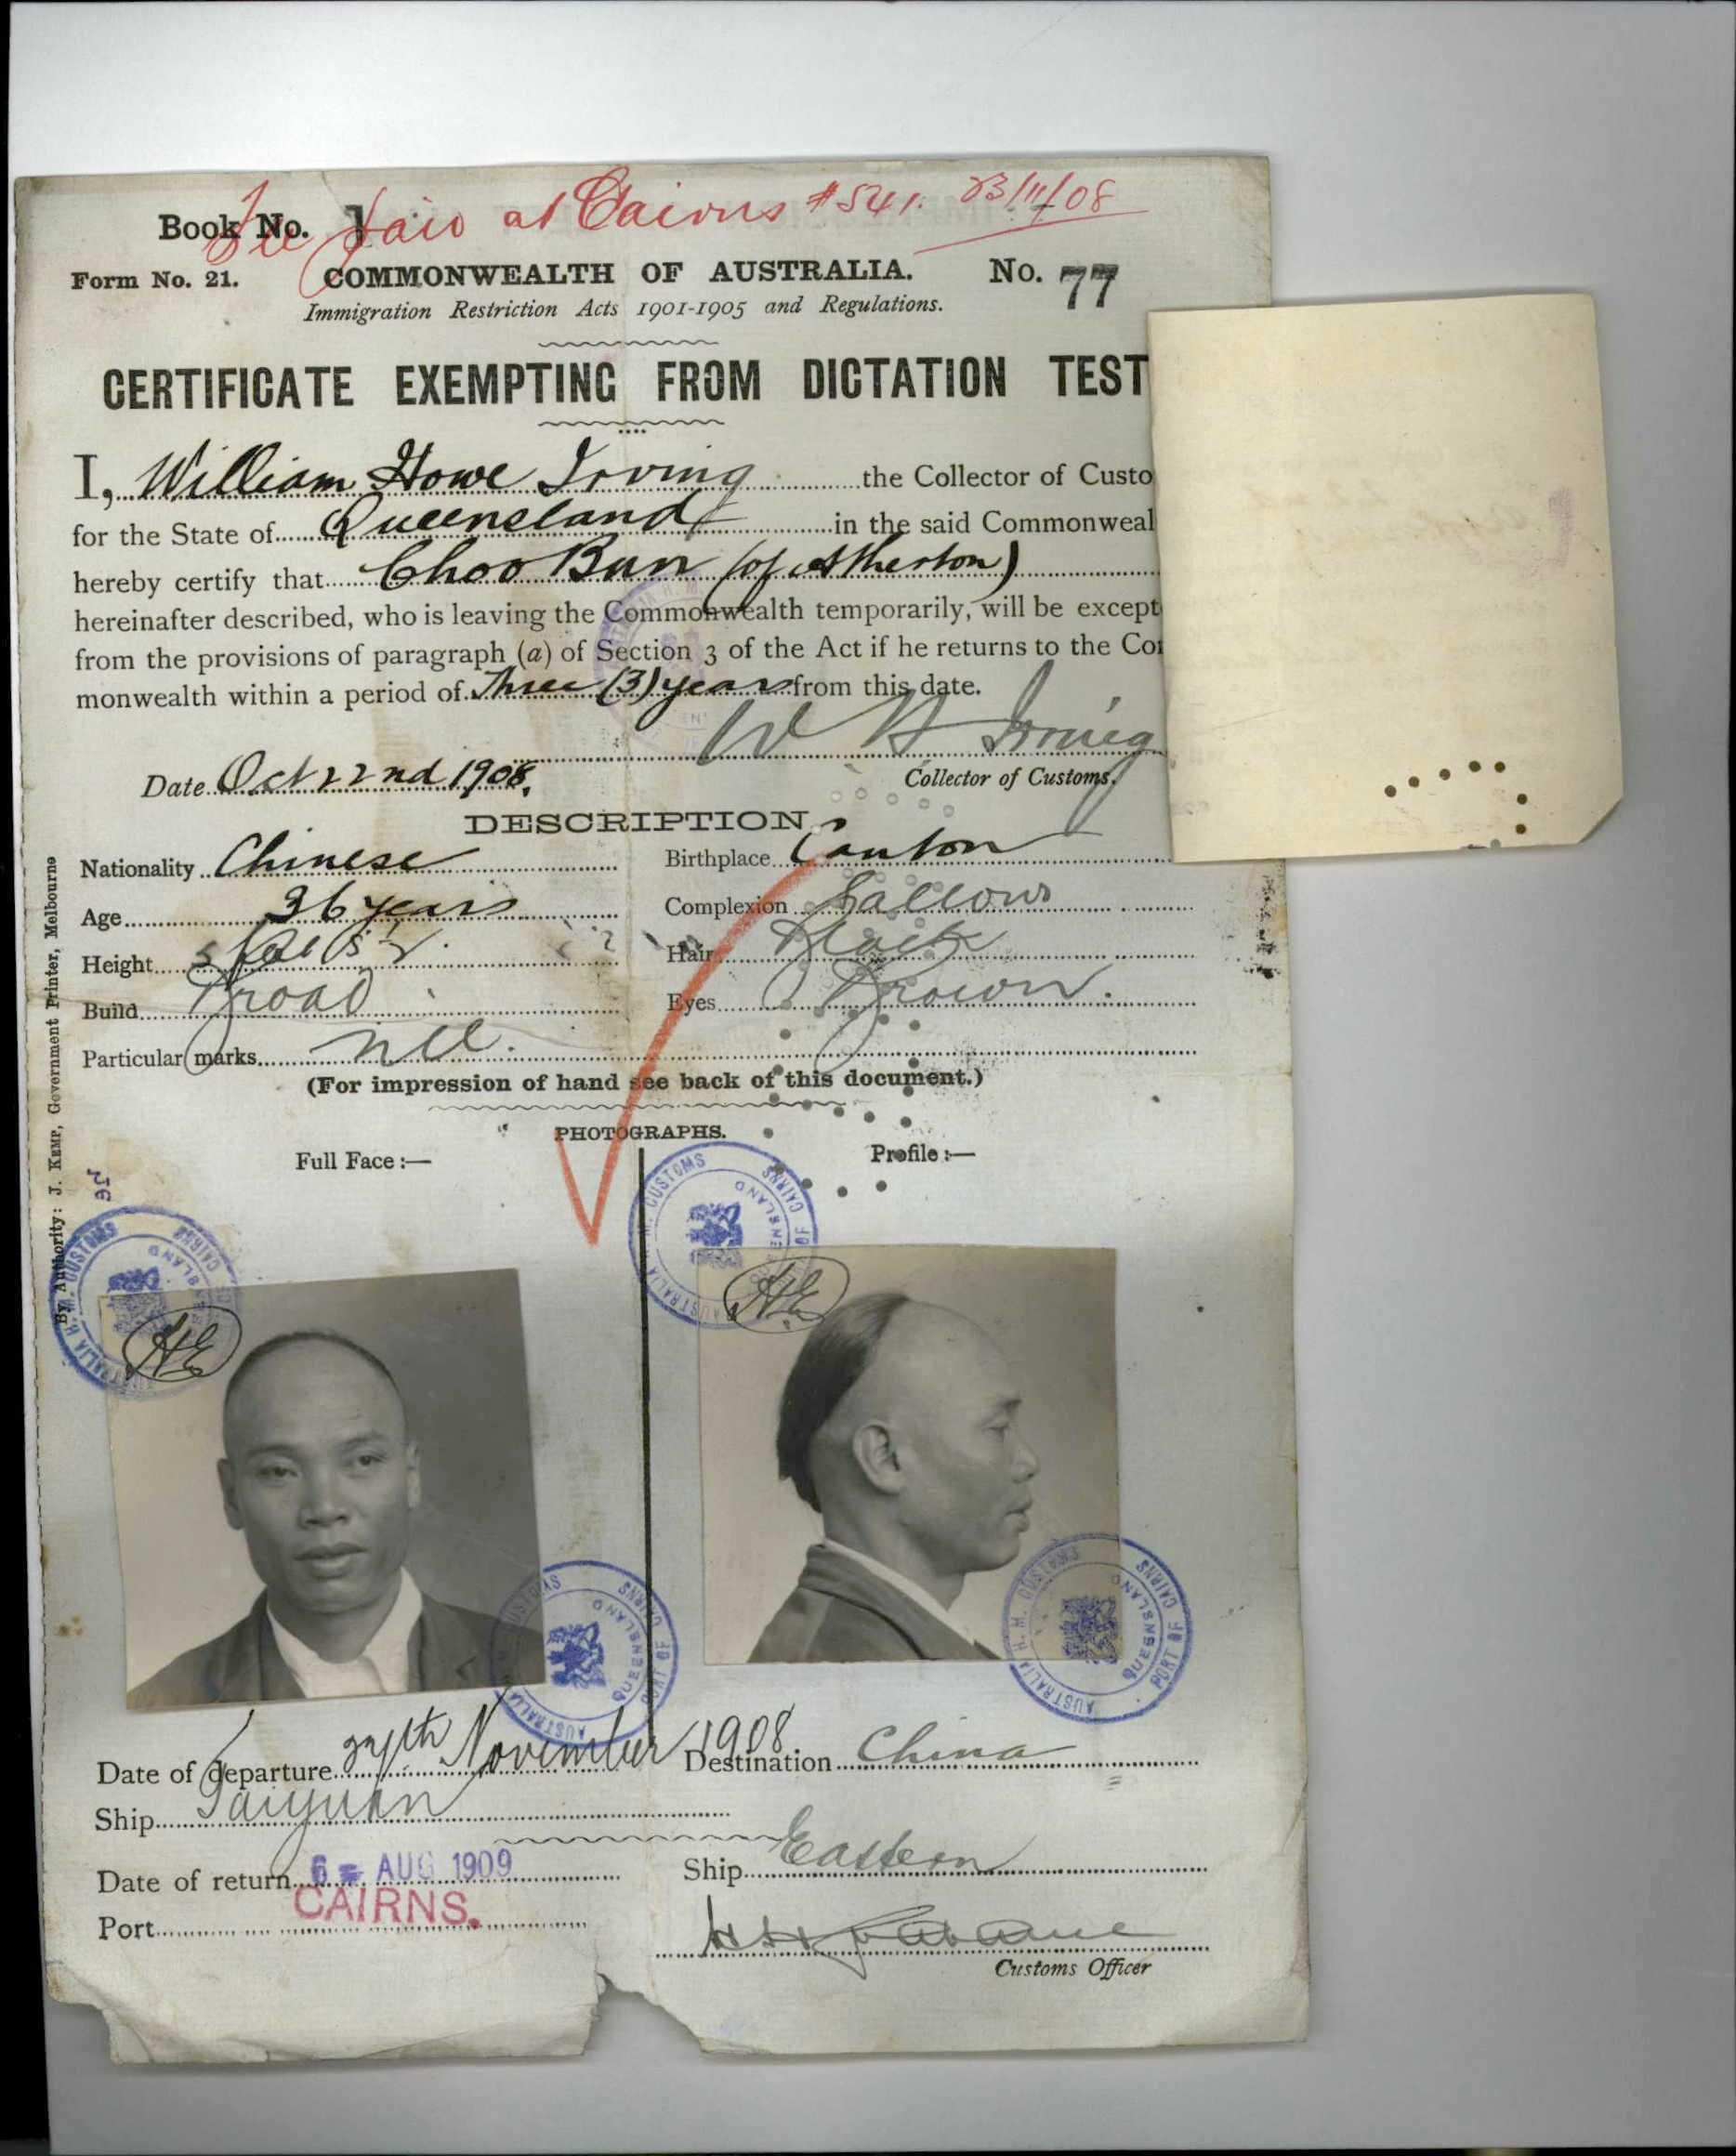 Fee paid at Cairns #541. 23/11/08
Book No. 1
Form No. 21. COMMONWEALTH OF AUSTRALIA. No. 77
Immigration Restriction Acts 1901-1905 and Regulations.
CERTIFICATE EXEMPTING FROM DICTATION TEST
I, William Howe Irving the Collector of Custo
for the State of Queensland in the said Commonweal
hereby certify that Choo Bun (of Atherton)
hereinafter described, who is leaving the Commonwealth temporarily, will be except
from the provisions of paragraph (a) of Section 3 of the Act if he returns to the Co
monwealth within a period of Three (3) years from this date.
W H Irving
Date Oct 22nd 1908. Collector of Customs.
DESCRIPTION
Nationality Chinese Birthplace Canton
Age 36 years Complexion Sallow
Height 5 feet Hair Black
Build Broad Eyes Brown.
Particular marks nil.
(For impression of hand see back of this document.)
PHOTOGRAPHS.
Full Face :— Profile :—
By Authority: J. KEMP, Government Printer, Melbourne
AUSTRALIA H.M. CUSTOMS PORT OF CAIRNS QUEENSLAND
AUSTRALIA H.M. CUSTOMS PORT OF CAIRNS QUEENSLAND
HE
HE
AUSTRALIA H.M. CUSTOMS PORT OF CAIRNS QUEENSLAND
AUSTRALIA H.M. CUSTOMS PORT OF CAIRNS QUEENSLAND
Date of departure November 1908 Destination China
Ship Taiyuan
Date of return 6 AUG 1909 Ship Eastern
Port CAIRNS.
Customs Officer